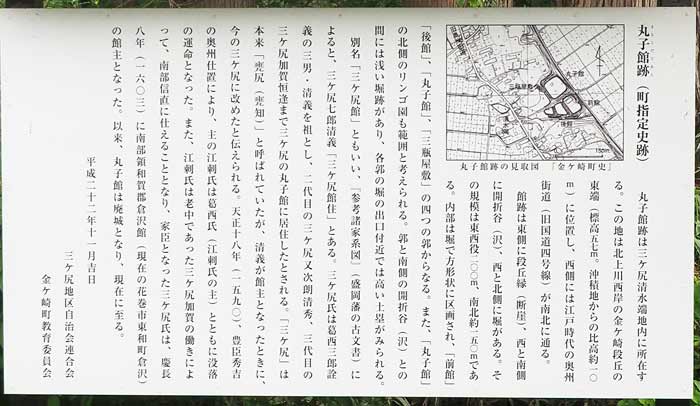 丸子館跡（町指定史跡）
丸子館
前館
三瓶屋敷
後館
150m
丸子館跡の見取図 『金ケ崎町史』
丸子館跡は三ケ尻清水端地内に所在す
る。この地は北上川西岸の金ケ崎段丘の
東端（標高五七m。沖積地からの比高約一〇
m）に位置し、西側には江戸時代の奥州
街道（旧国道四号線）が南北に通る。
館跡は東側に段丘縁（断崖）、西と南側
に開折谷（沢）、西と北側に堀がある。そ
の規模は東西役二〇〇m、南北約一五〇mであ
る。内部は堀で方形状に区画され、「前館」
「後館」、「丸子館」、「三瓶屋敷」の四つの郭からなる。また、「丸子館」
の北側のリンゴ園も範囲と考えられる。郭と南側の開折谷（沢）との
間には浅い堀跡があり、各郭の堀の出口付近では高い土塁がみられる。
別名「三ケ尻館」ともいい、「参考諸家系図」（盛岡藩の古文書）に
よると、三ケ尻七郎清義「三ケ尻館住」とある。三ケ尻氏は葛西三郎詮
義の三男・清義を祖とし、二代目の三ケ尻又次朗清秀、三代目の
三ケ尻加賀恒逢まで三ケ尻の丸子館に居住したとされる。「三ケ尻」は
本来「甕尻（甕知）」と呼ばれていたが、清義が館主となったときに、
今の三ケ尻に改めたと伝えられる。天正十八年（一五九〇）、豊臣秀吉
の奥州仕置により、主の江刺氏は葛西氏（江刺氏の主）とともに没落
の運命となった。また、江刺氏は老中であった三ケ尻加賀の働きによ
って、南部信直に仕えることとなり、家臣となった三ケ尻氏は、慶長
八年（一六〇三）に南部領和賀郡倉沢館（現在の花巻市東和町倉沢）
の館主となった。以来、丸子館は廃城となり、現在に至る。
平成二十二年十一月吉日
三ケ尻地区自治会連合会
金ケ崎町教育委員会